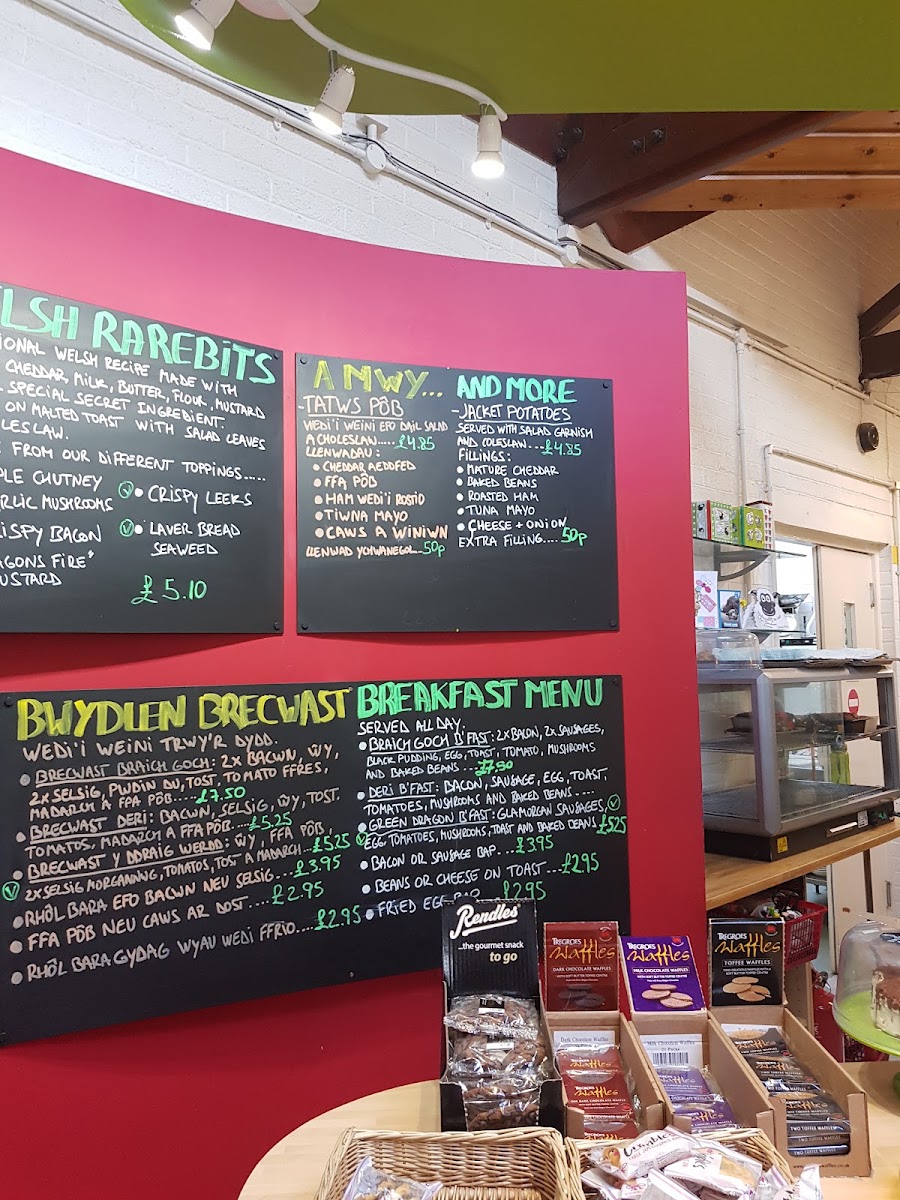 LSH RAREBITS
IONAL WELSH RECIPE MADE WITH
CHEDDAR, MILK, BUTTER, FLOUR, MUSTARD
SPECIAL SECRET INGREDIENT.
ON MALTED TOAST WITH SALAD LEAVES
LESLAW.
FROM OUR DIFFERENT TOPPINGS.....
PLE CHUTNEY
RLIC MUSHROOMS
RISPY BACON
AGONS FIRE"
USTARD
V • CRISPY LEEKS
V • LAVER BREAD
SEAWEED
£5.10
A MWY...
- TATWS PÔB
WEDI'I WEINI EFO DAIL SALAD
A CHOLESLAW..... £4.85
LLENWADAU:
• CHEDDAR AEDDFED
• FFA PÔB
• HAM WEDI'I ROSTIO
• TIWNA MAYO
• CAWS A WINIWN
LLENWAD YCHWANEGOL.. 50p
AND MORE
- JACKET POTATOES
SERVED WITH SALAD GARNISH
AND COLESLAW.... £4.85
FILLINGS:
• MATURE CHEDDAR
• BAKED BEANS
• ROASTED HAM
• TUNA MAYO
• CHEESE + ONION
EXTRA FILLING.... 50p
BWYDLEN BRECWAST
WEDI'I WEINI TRWY'R DYDD.
• BRECWAST BRAICH GOCH: 2X BACWN, ŴY,
2X SELSIG, PWDIN DU, TOST, TOMATO FFRES,
MADARCH A FFA PÔB.....£7.50
• BRECWAST DERI: BACWN, SELSIG, ŴY, TOST.
TOMATOS, MADARCH A FFA PÔB....£5.25
• BRECWAST Y DDRAIG WERDD: ŴY, FFA PÔB,
V 2X SELSIG MORGANNWG, TOMATOS, TOST A MADARCH...£5.25
• RHÔL BARA EFO BACWN NEU SELSIG....£3.95
• FFA PÔB NEU CAWS AR DOST.....£2.95
• RHÔL BARA GYDAG WYAU WEDI FFRIO....£2.95
BREAKFAST MENU
SERVED ALL DAY.
• BRAICH GOCH B'FAST: 2X BACON, 2X SAUSAGES,
BLACK PUDDING, EGG, TOAST, TOMATO, MUSHROOMS
AND BAKED BEANS ....£7.50
• DERI B'FAST: BACON, SAUSAGE, EGG, TOAST,
TOMATOES, MUSHROOMS AND BAKED BEANS ....
• GREEN DRAGON B'FAST: GLAMORGAN SAUSAGES, V
V EGG, TOMATOES, MUSHROOMS, TOAST AND BAKED BEANS £5.25
• BACON OR SAUSAGE BAP ....£3.95
• BEANS OR CHEESE ON TOAST ....£2.95
• FRIED EGG BAP £2.95
Rendles
...the gourmet snack
to go
TREGROES
Waffles
DARK CHOCOLATE WAFFLES
TREGROES
Waffles
MILK CHOCOLATE WAFFLES
TREGROES
Waffles
TOFFEE WAFFLES
Dark Chocolate Waffles
Milk Chocolate Waffles
Waffles
Waffles
Waffles
TWO TOFFEE WAFFLES